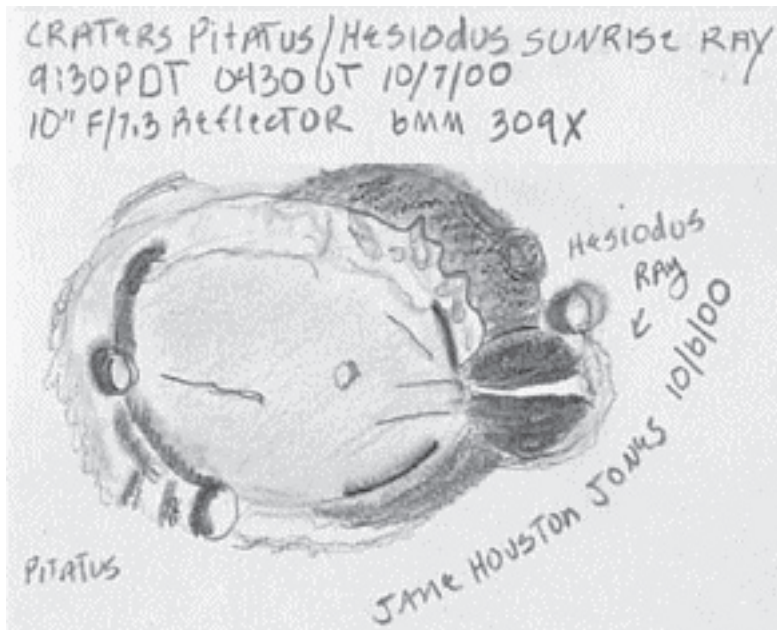 CRATERS PITATUS/HESIODUS SUNRISE RAY
9:30PDT 0430 UT 10/7/00
10" F/7.3 REFLECTOR 6MM 309X
HESIODUS
RAY
JANE HOUSTON JONES 10/6/00
PITATUS